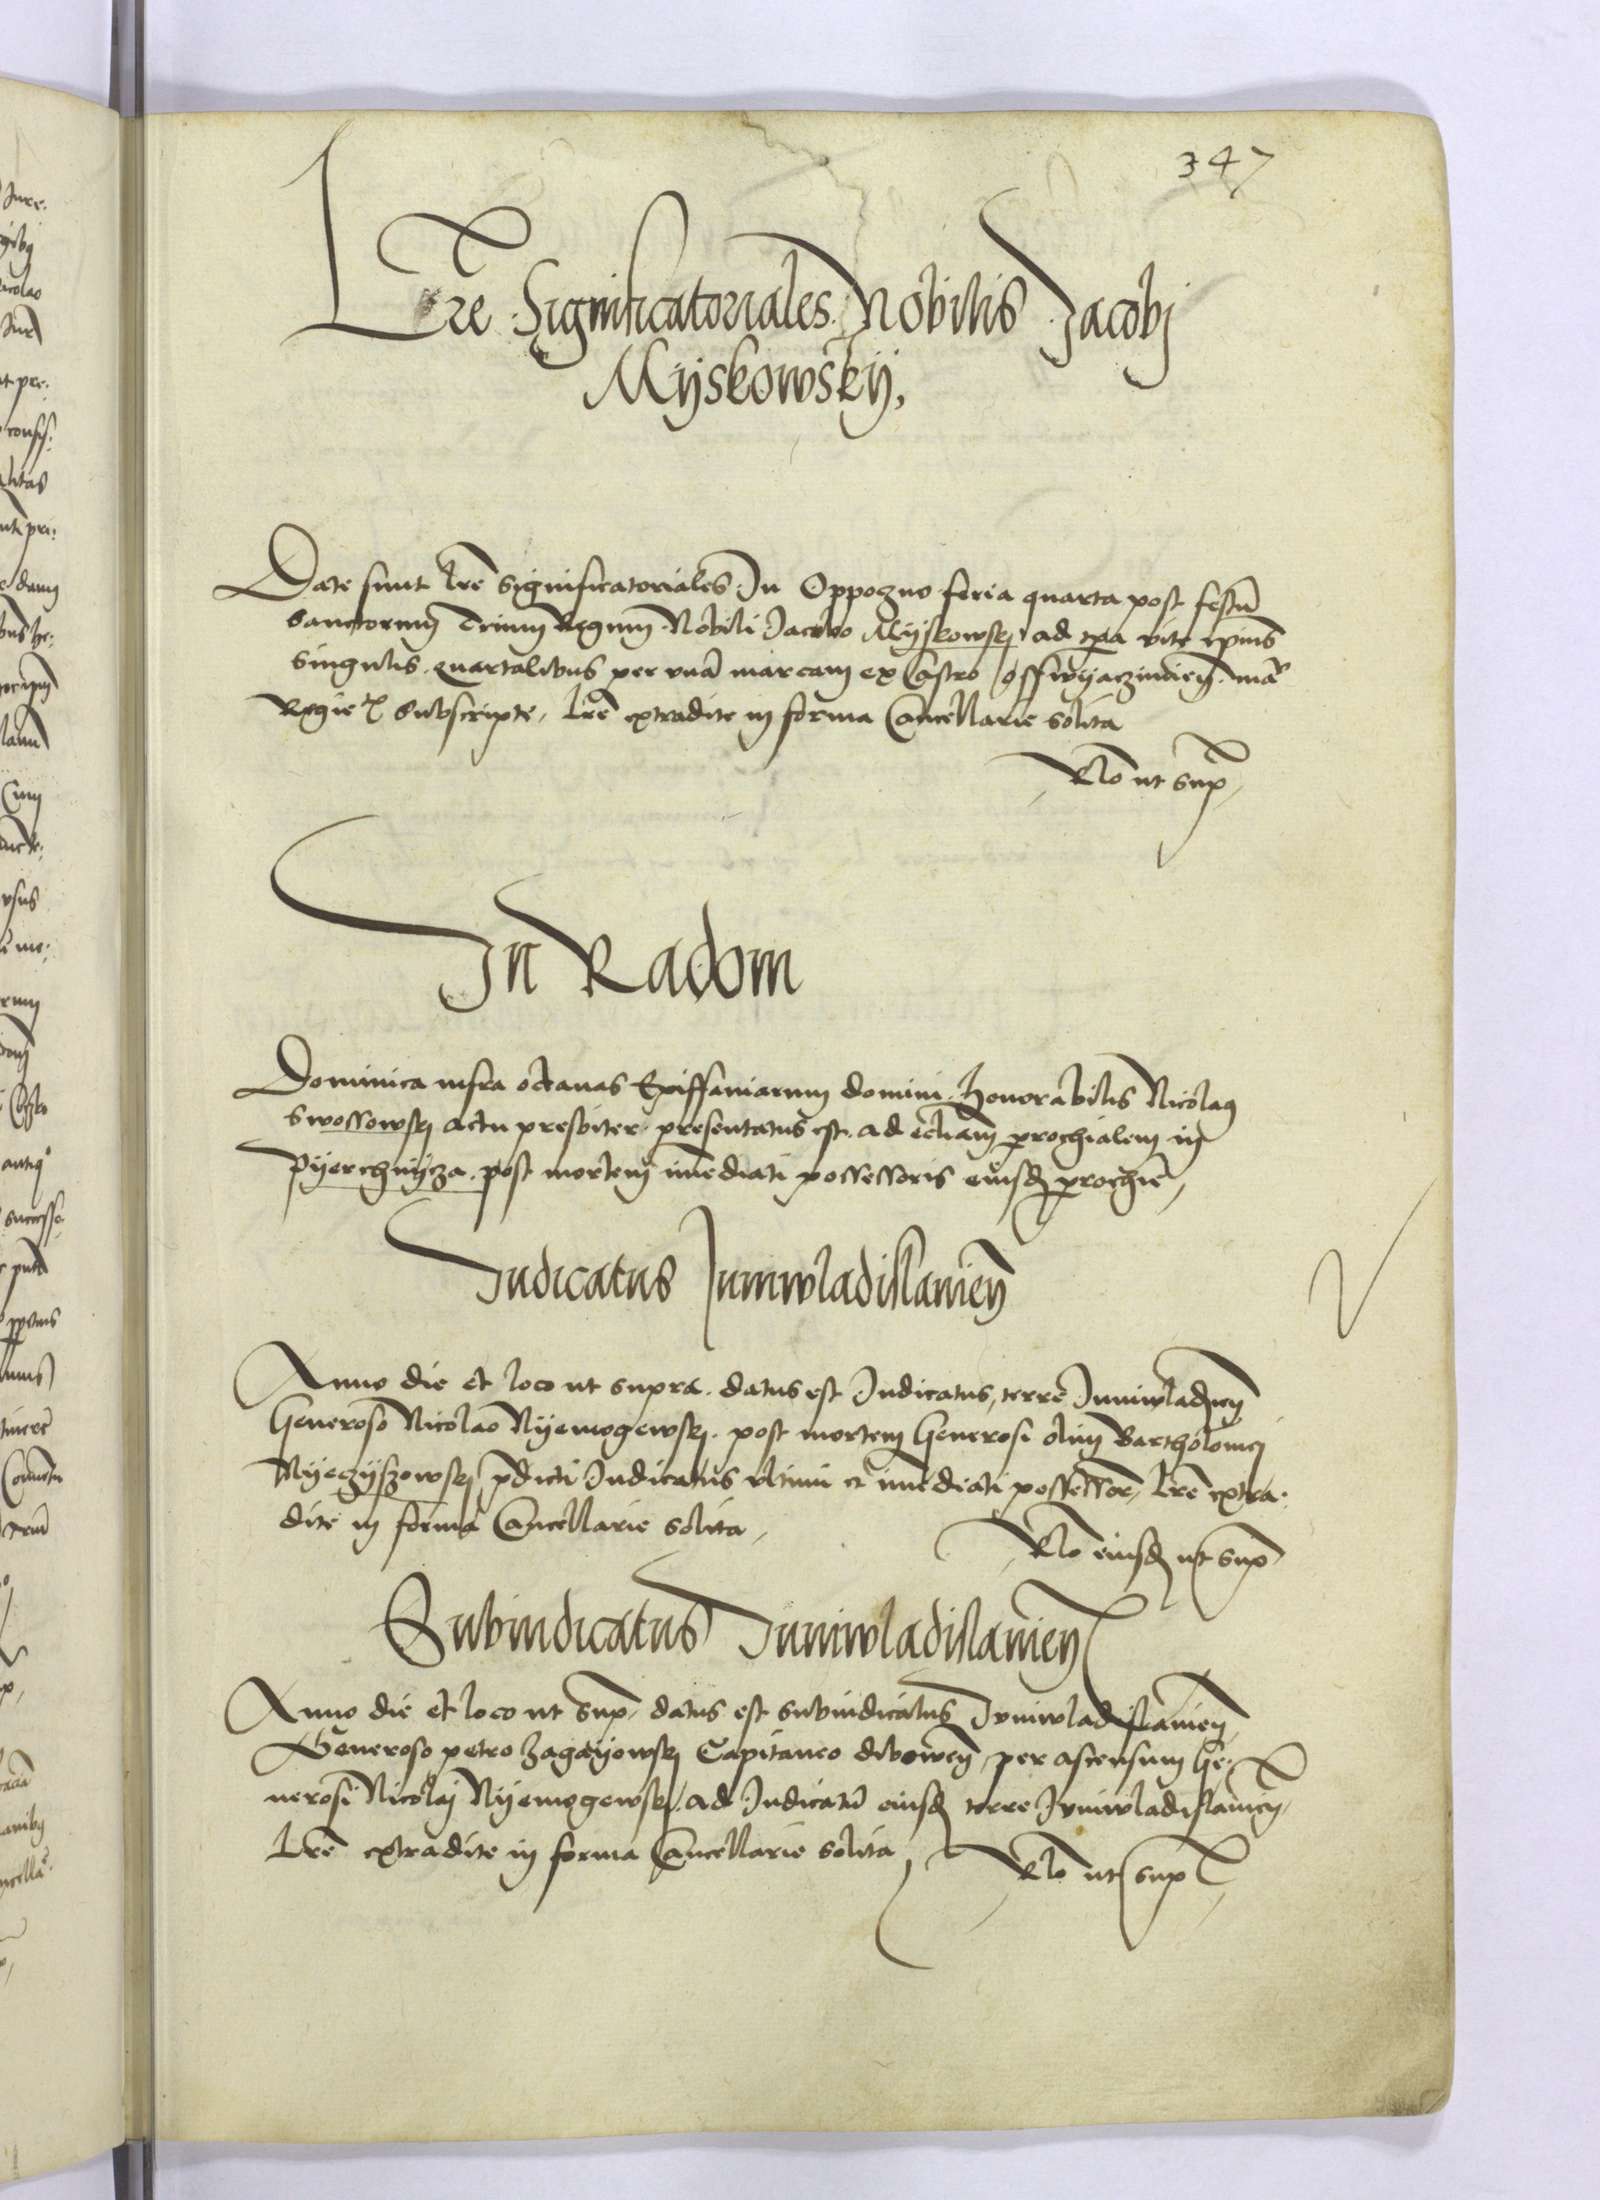 347
Lre Significatoriales Nobilis Jacobj
Myskowskÿ,
Date sunt lrē significatoriales In Oppogno feria quarta post festū
Sanctorum Trium Regum Nobili Jacobo Myskowskj ad tpa vite ipius
singulis quartalibus per vnā marcam ex Castro Osswyaczimień.
Regie subscripte, lrē extradite in forma Cancellarie solita
Rlo ut sup
In Radom
Dominica infra octauas Epiffaniarum domini honorabilis Nicolaus
Swossowskj actu presbiter presentatus est ad ecliam parochialem in
Pyerchnycza post mortem imediati possessoris eiusd parochie,
Iudicatus Iuniwladislauien
Anno die et loco ut supra datus est Iudicatus terre Iuniwladien
Generoso Nicolao Nyemogewskj post mortem Generosi olim Bartholomej
Nyeczyszowskj pdicti Iudicatus vltimi et imediati possessor, lrē extra
dite in forma Cancellarie solita,
Rlo eiusd ut sup
Subiudicatus Iuniwladislauien
Anno die et loco ut sup datus est subiudicatus Iuniwladislauien
Generoso petro Zagayowskj Capitaneo dibowen per ascensum Ge
nerosi Nicolaj Nyemogewskj ad Iudicatū eiusd terre Iuniwladislauien
Lrē extradite in forma Cancellarie solita
Rlo ut sup